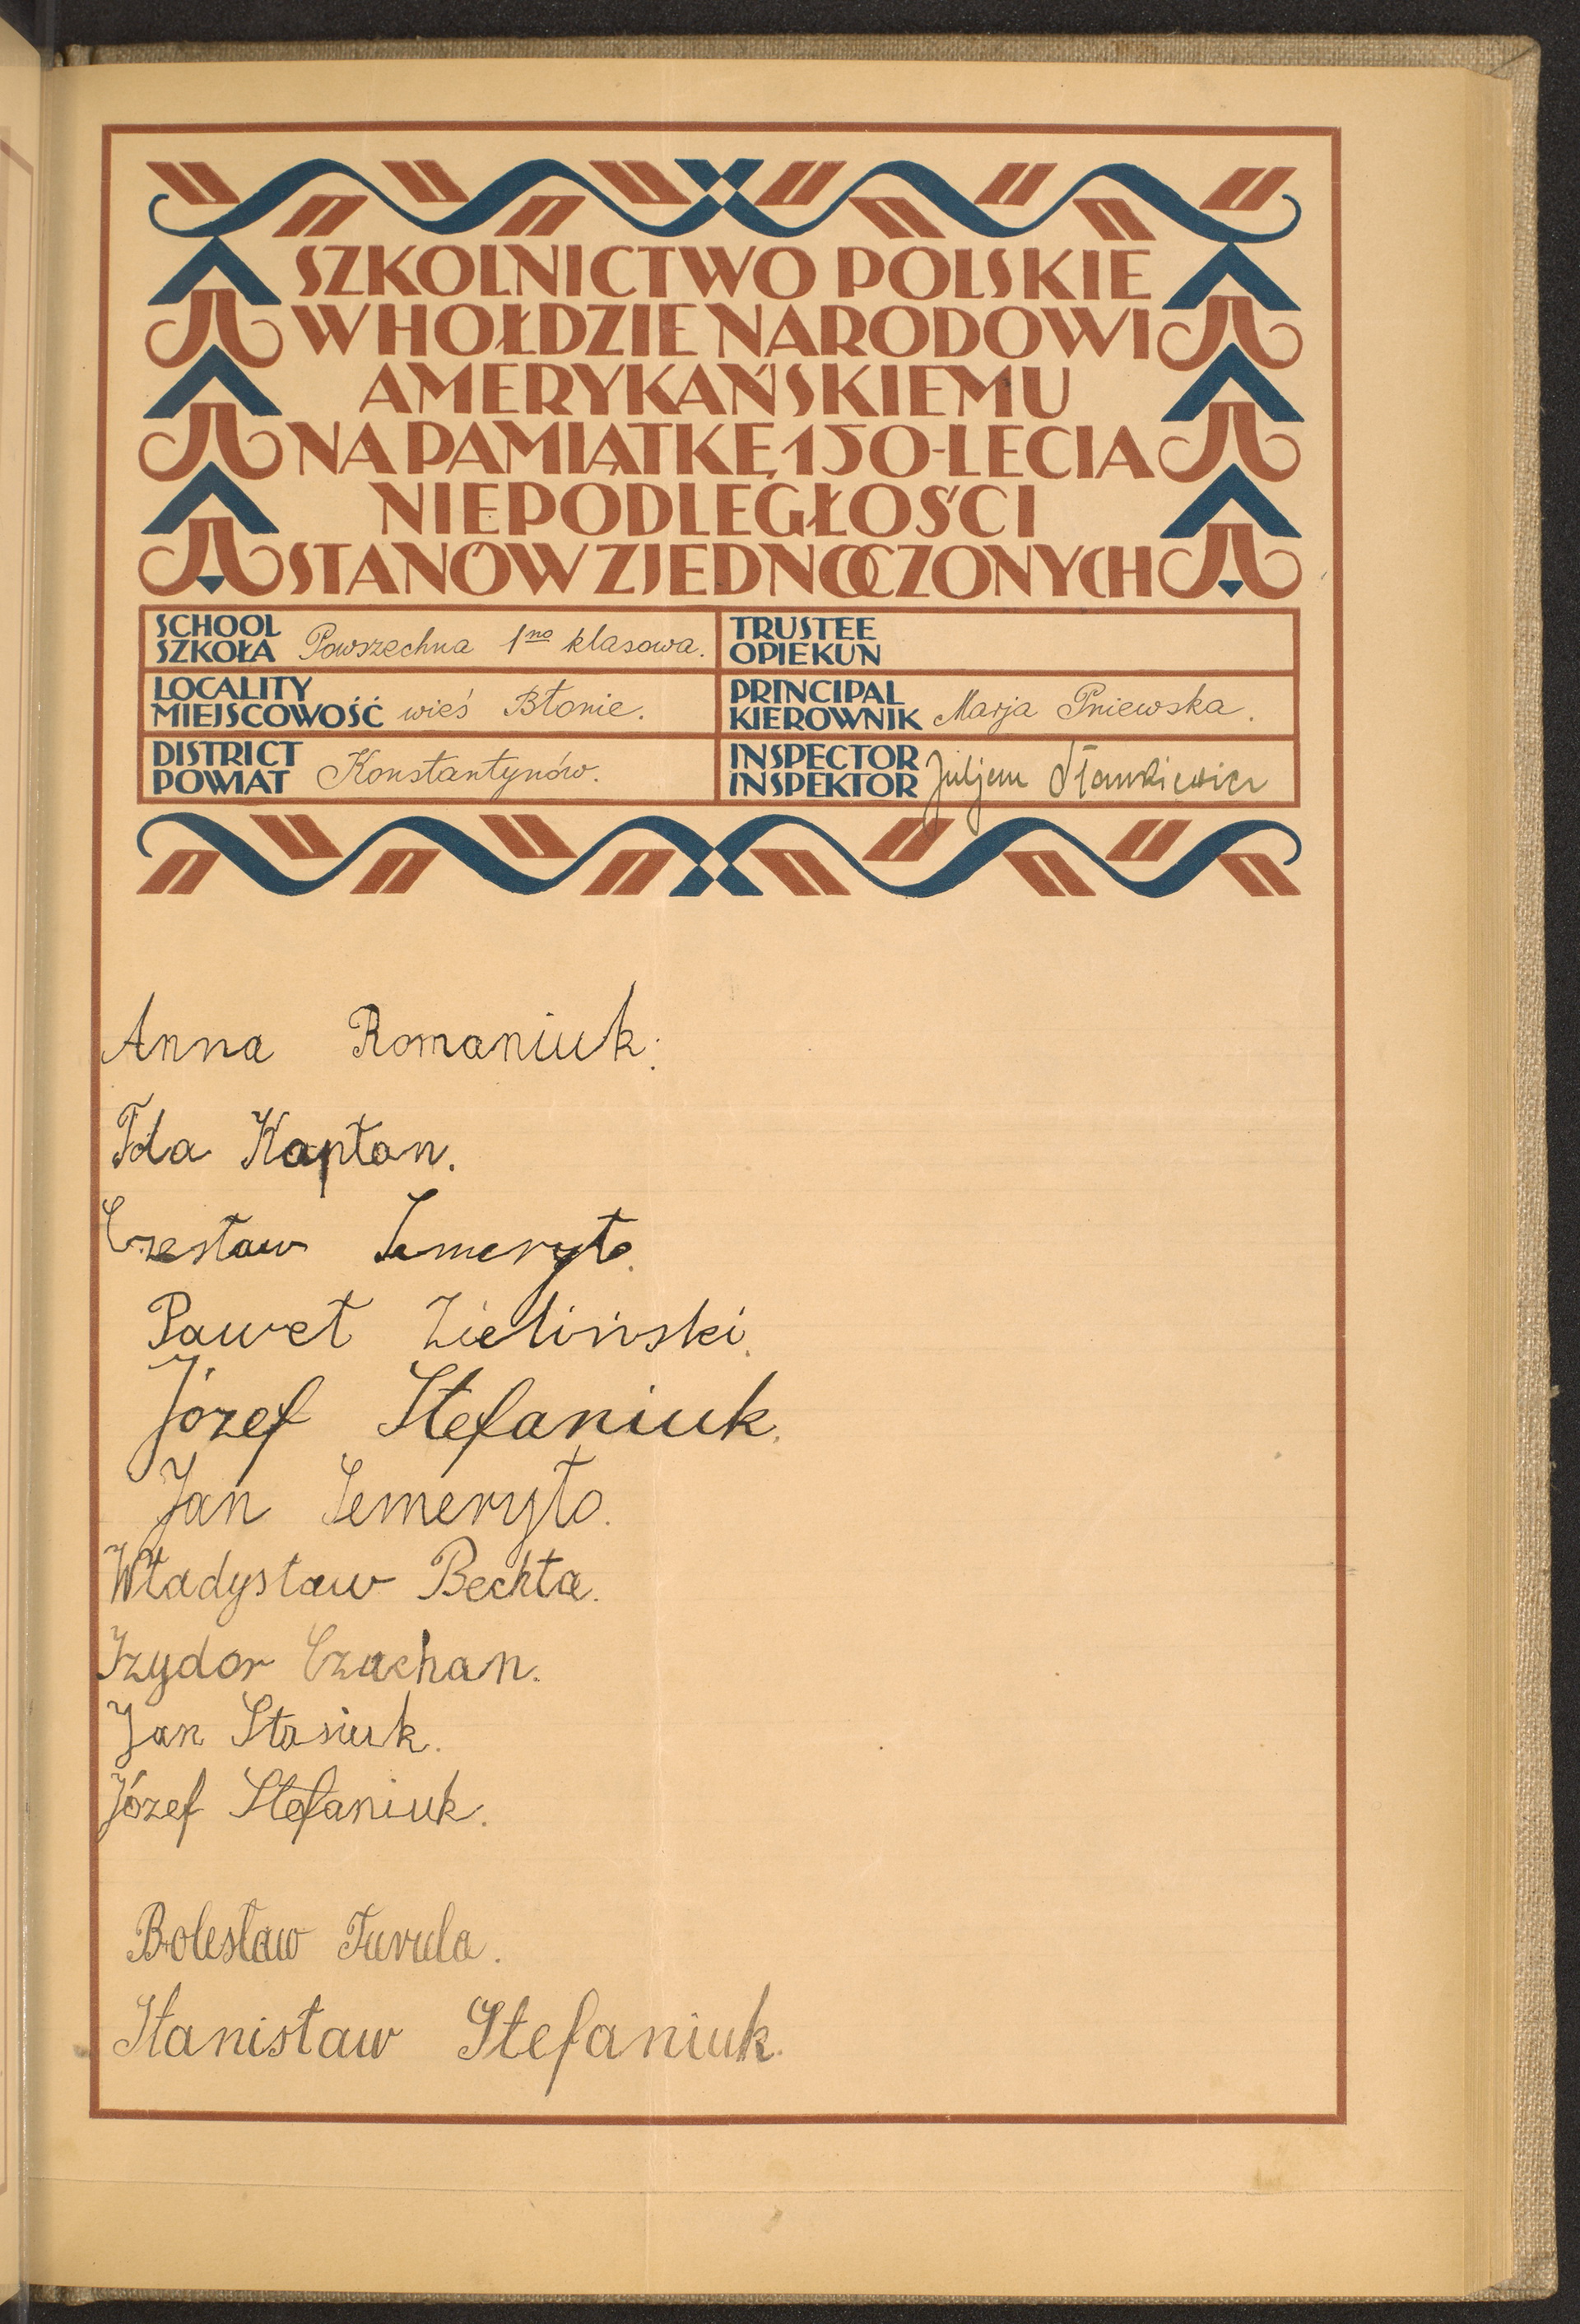 SZKOLNICTWO POLSKIE
W HOŁDZIE NARODOWI
AMERYKAŃSKIEMU
NA PAMIĄTKĘ 150-LECIA
NIEPODLEGŁOŚCI
STANÓW ZJEDNOCZONYCH
SCHOOL
SZKOŁA Powszechna 1no klasowa.
TRUSTEE
OPIEKUN
LOCALITY
MIEJSCOWOŚĆ wieś Błonie.
PRINCIPAL
KIEROWNIK Marja Pniewska.
DISTRICT
POWIAT Konstantynów.
INSPECTOR
INSPEKTOR Juljan
Anna Romaniuk.
Ida Kapłan.
Czesław Semeryło.
Paweł Zieliński.
Józef Stefaniuk.
Jan Semeryło.
Władysław Bechta.
Izydor Czuchan.
Jan Stasiuk.
Józef Stefaniuk.
Bolesław Turula.
Stanisław Stefaniuk.